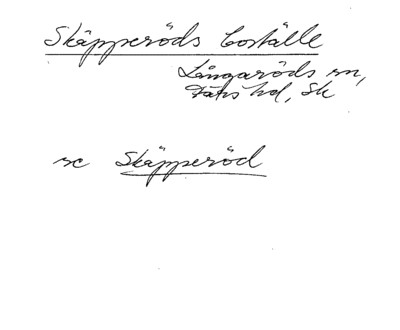 Skäpperöds boställe
Långaröds sn,
Färs hd, Sk
se Skäpperöd